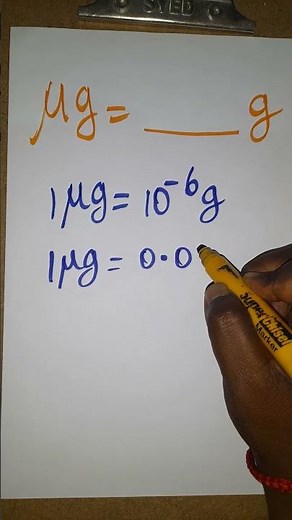 SYED
μg = ___ g
1μg = 10⁻⁶g
1μg = 0.0
Marker